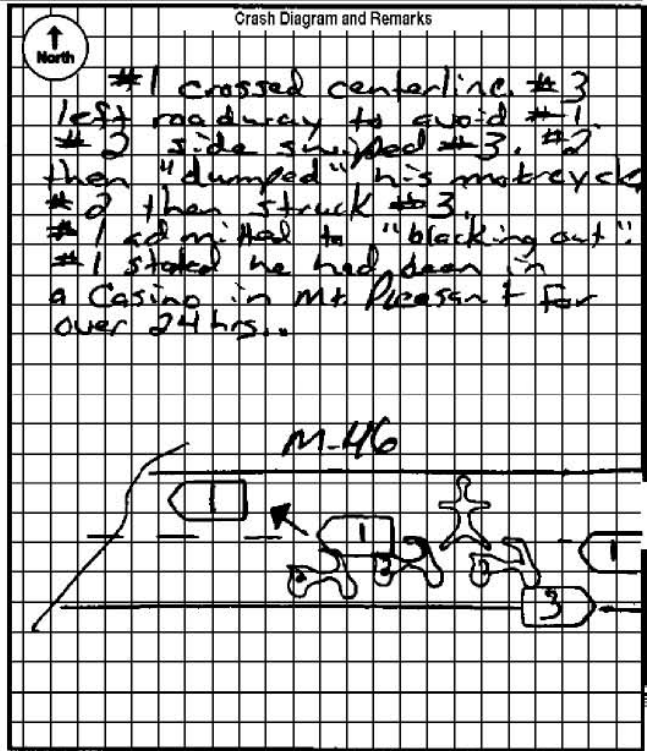 Crash Diagram and Remarks
North
#1 crossed centerline. #3
left roadway to avoid #1.
#2 side swiped #3. #2
then "dumped" his motrcycle
#2 then struck #3.
#1 admitted to "blacking out".
#1 stated he had been in
a Casino in Mt Pleasant for
over 24 hrs..
M-46
1
1
1
2
2
2
3